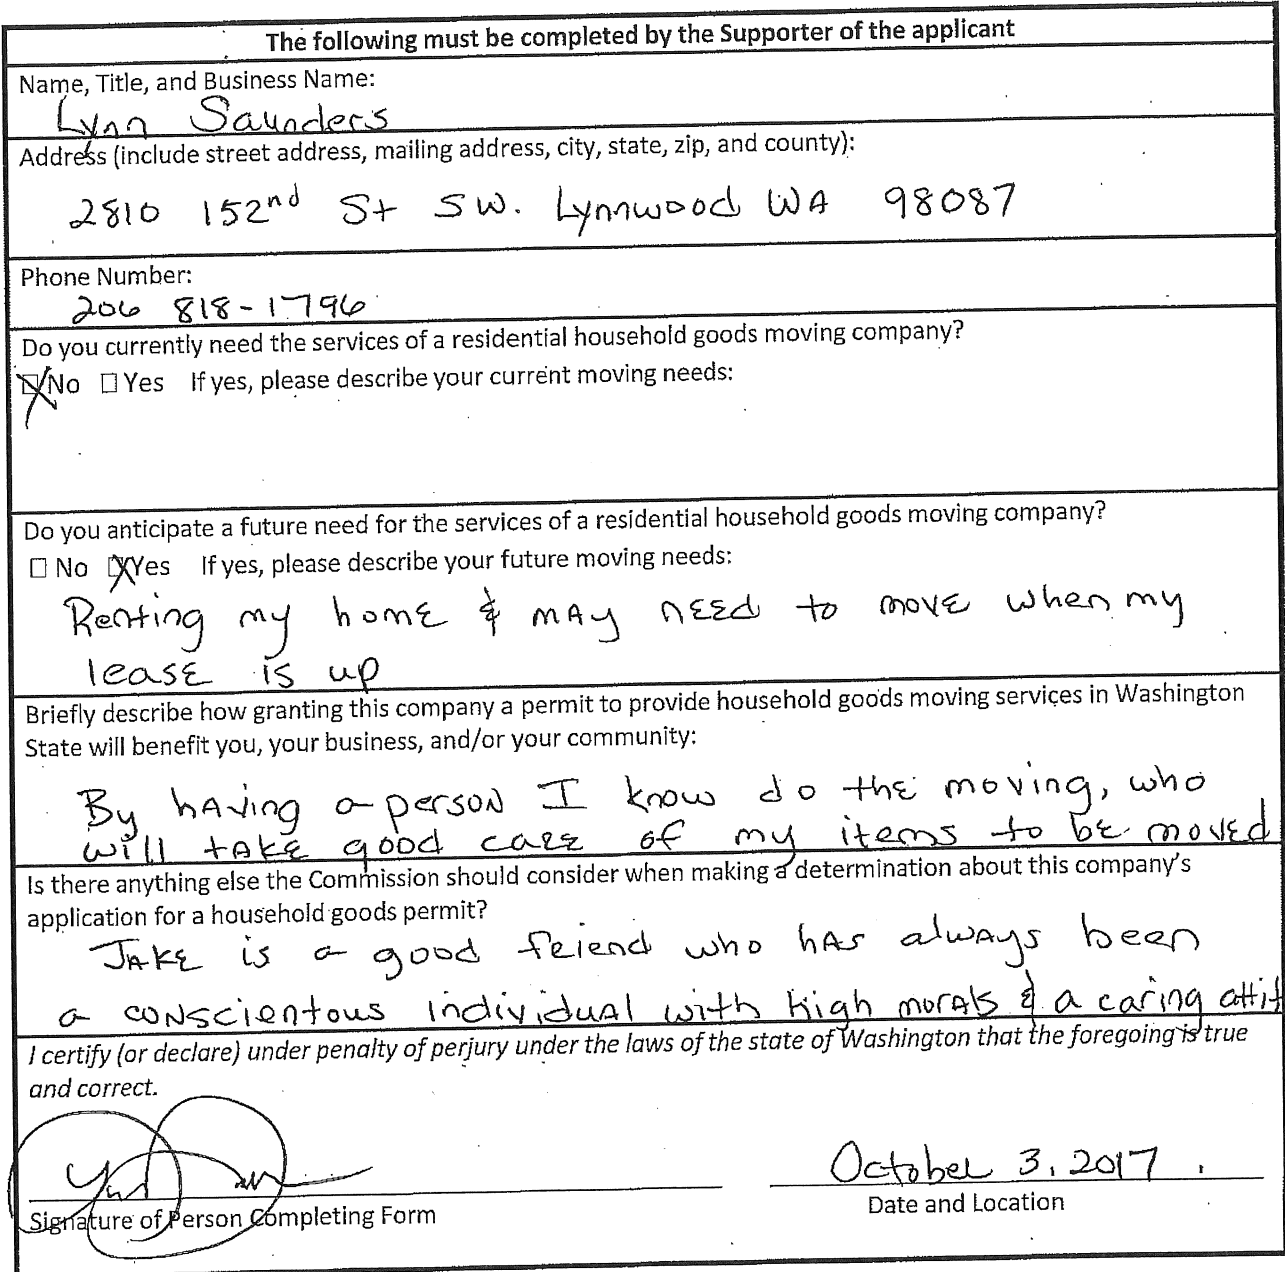 The following must be completed by the Supporter of the applicant
Name, Title, and Business Name:
Lynn Saunders
Address (include street address, mailing address, city, state, zip, and county):
2810 152nd St SW. Lynnwood WA 98087
Phone Number:
206 818-1796
Do you currently need the services of a residential household goods moving company?
☒ No ☐ Yes If yes, please describe your current moving needs:
Do you anticipate a future need for the services of a residential household goods moving company?
☐ No ☒ Yes If yes, please describe your future moving needs:
Renting my home & may need to move when my
lease is up
Briefly describe how granting this company a permit to provide household goods moving services in Washington
State will benefit you, your business, and/or your community:
By having a person I know do the moving, who
will take good care of my items to be moved
Is there anything else the Commission should consider when making a determination about this company's
application for a household goods permit?
Jake is a good friend who has always been
a conscientous individual with high morals & a caring attit
I certify (or declare) under penalty of perjury under the laws of the state of Washington that the foregoing is true
and correct.
October 3, 2017
Signature of Person Completing Form
Date and Location